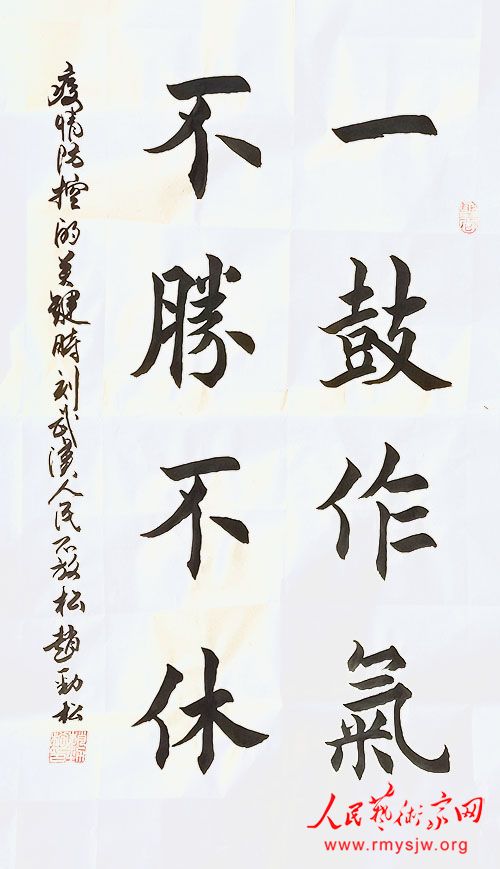 一鼓作氣
不勝不休
疫情防控的关键時刻武漢人民不放松趙勁松
人民藝術家网
www.rmysjw.org